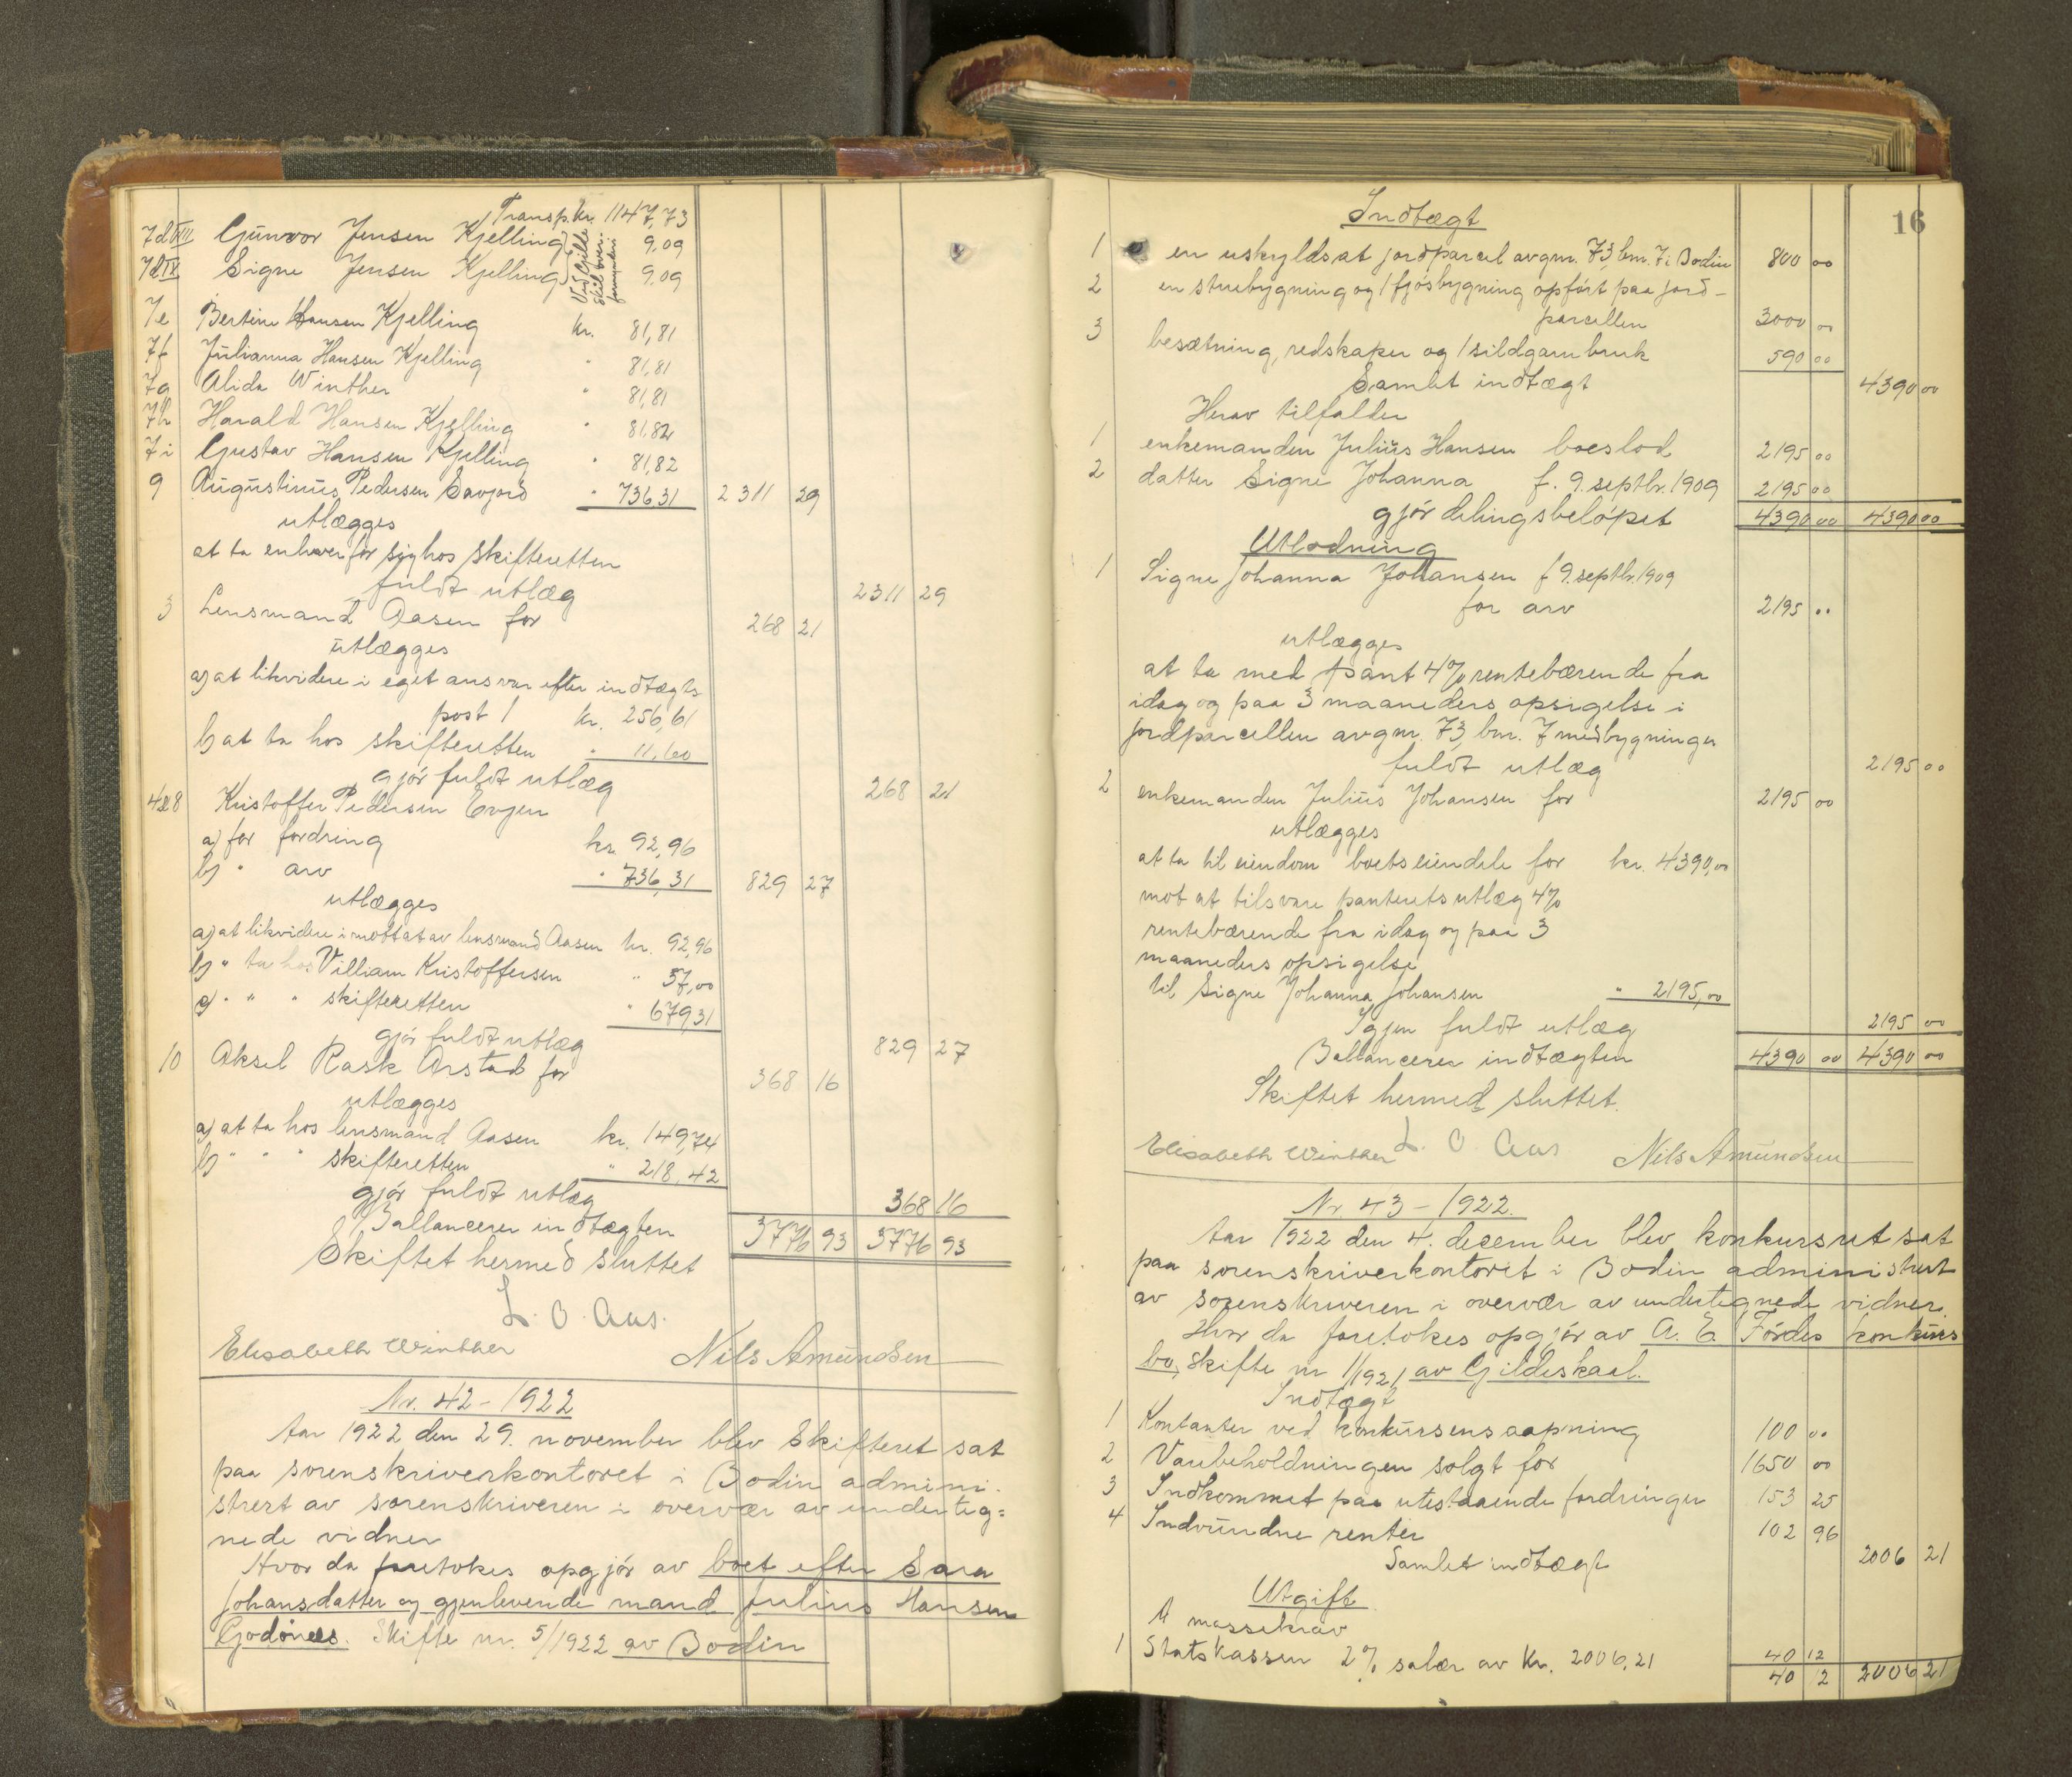 Transp. kr. 1147,73
7d VIII Gunvor Jensen Kjelling 9,09
7d IX Signe Jensen Kjelling 9,09
Ved Gilde-
skaal over-
formynderi
7e Bertine Hansen Kjelling kr. 81,81
7f Julianna Hansen Kjelling " 81,81
7g Alida Winther " 81,81
7h Harald Hansen Kjelling " 81,82
7i Gustav Hansen Kjelling " 81,82
9 Augustinus Pedersen Savjord " 736,31 2311 29
utlægges
at ta enhver for sig hos skifteretten
fuldt utlæg 2311 29
3 Lensmand Aasen for 268 21
utlægges
a) at likvidere i eget ansvar efter indtægts
post 1 kr. 256,61
b) at ta hos skifteretten " 11,60
gjør fuldt utlæg 268 21
4 & 8 Kristoffer Pedersen Evjen
a) for fordring kr. 92,96
b) " arv " 736,31 829 27
utlægges
a) at likvidere i mottat av lensmand Aasen kr. 92,96
b) " ta hos Villiam Kristoffersen " 57,00
c) " " " skifteretten " 679,31
gjør fuldt utlæg 829 27
10 Aksel Rask Arstad for 368 16
utlægges
a) at ta hos lensmand Aasen kr. 149,74
b) " " " skifteretten " 218,42
gjør fuldt utlæg 368 16
Ballancerer indtægten 3776 93 3776 93
Skiftet hermed sluttet
L. O. Aas.
Elisabeth Winther Nils Amundsen
Nr. 42 - 1922
Aar 1922 den 29. november blev Skifteret sat
paa sorenskriverkontoret i Bodin admini-
strert av sorenskriveren i overvær av underteg=
nede vidner
Hvor da foretokes opgjør av boet efter Sara
Johansdatter og gjenlevende mand Julius Hansen
Godønes. Skifte nr. 5/1922 av Bodin
16
Indtægt
1 en uskyldsat jordparcel av gnr. 73, bnr. 7 i Bodin 800 00
2 en stuebygning og 1 fjøsbygning opført paa jord-
parcellen 3000 00
3 besætning, redskaper og 1 sildgarnbruk 590 00
Samlet indtægt 4390 00
Herav tilfalder
1 enkemanden Julius Hansen boeslod 2195 00
2 datter Signe Johanna f. 9. septbr. 1909 2195 00
gjør delingsbeløpet 4390 00 4390 00
Utlodning
1 Signe Johanna Johansen f 9. septbr. 1909
for arv 2195 00
utlægges
at ta med pant 4% rentebærende fra
idag og paa 3 maaneders opsigelse i
jordparcellen av gnr. 73, bnr. 7 med bygninger
fuldt utlæg 2195 00
2 enkemanden Julius Johansen for 2195 00
utlægges
at ta til eiendom boets eiendele for kr. 4390,00
mot at tilsvare panterets utlæg 4%
rentebærende fra idag og paa 3
maaneders opsigelse
til Signe Johanna Johansen " 2195,00
Igjen fuldt utlæg 2195 00
Ballancerer indtægten 4390 00 4390 00
Skiftet hermed sluttet.
Elisabeth Winther L. O. Aas Nils Amundsen
Nr. 43 - 1922.
Aar 1922 den 4. december blev konkursret sat
paa sorenskriverkontoret i Bodin administrert
av sorenskriveren i overvær av undertegnede vidner.
Hvor da foretokes opgjør av A. E. Fördes konkurs
bo, skifte nr 1/1921 av Gildeskaal.
Indtægt
1 Kontanter ved konkursens aapning 100 00
2 Varebeholdningen solgt for 1650 00
3 Indkommet paa utestaaende fordringer 153 25
4 Indvundne renter 102 96
Samlet indtægt 2006 21
Utgift
A massekrav
1 Statskassen 2% salær av kr. 2006,21 40 12
40 12 2006 21